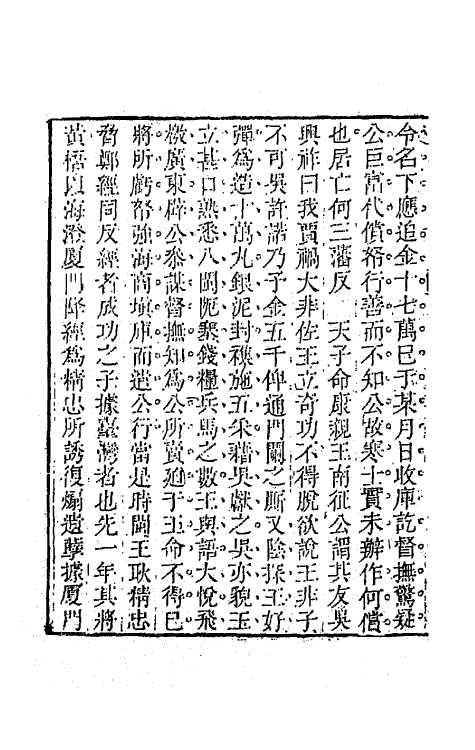 令名下應追金十七萬已于某月日收庫訖督撫驚疑
公巨富代償務行善而不知公故寒士實未辦作何償
也居亡何三藩反　天子命康親王南征公謂其友吳
興祚曰我賈禍大非佐王立奇功不得脫欲說王非子
不可吳許諾乃予金五千俾通門閽之厮又陰探王好
彈為造十萬丸銀泥封裹施五采藉吳獻之吳亦貌玉
立甚口熟悉八閩阨塞錢糧兵馬之數王與語大悅飛
檄廣東辟公叅謀督撫知為公所賣廹于王命不得已
將所虧帑強海商塡庫而遣公行當是時閩王耿精忠
脅鄭經同反經者成功之子據臺灣者也先一年其將
黃梧以海澄厦門降經為精忠所誘復煽遺孽據厦門